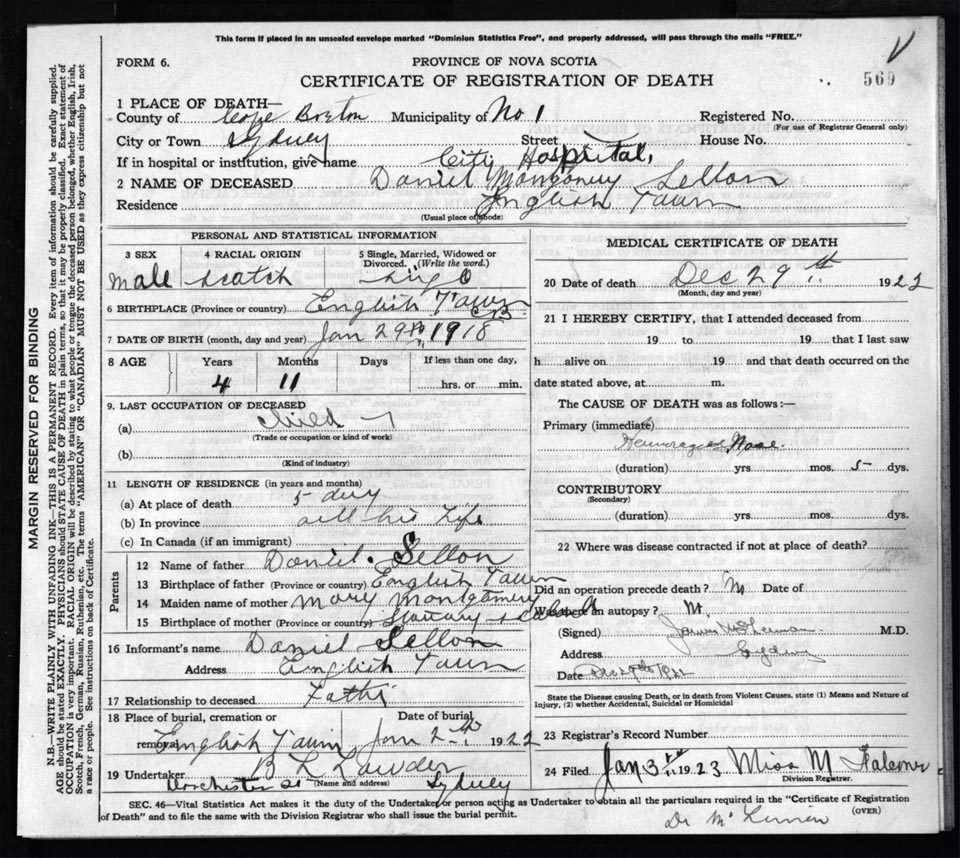 This form if placed in an unsealed envelope marked "Dominion Statistics Free", and properly addressed, will pass through the mails "FREE."
FORM 6.
PROVINCE OF NOVA SCOTIA
CERTIFICATE OF REGISTRATION OF DEATH
569
1 PLACE OF DEATH—
County of Cape Breton Municipality of No 1 Registered No.
(For use of Registrar General only)
City or Town Sydney Street House No.
If in hospital or institution, give name City Hospital,
2 NAME OF DECEASED Daniel Sellon
Residence English Town
(Usual place of abode)
PERSONAL AND STATISTICAL INFORMATION
3 SEX 4 RACIAL ORIGIN 5 Single, Married, Widowed or Divorced. (Write the word.)
Male Scotch
6 BIRTHPLACE (Province or country) English Town CB
7 DATE OF BIRTH (month, day and year) Jan 29th, 1918
8 AGE Years Months Days If less than one day,
4 11 hrs. or min.
9. LAST OCCUPATION OF DECEASED
(a) child
(Trade or occupation or kind of work)
(b)
(Kind of industry)
11 LENGTH OF RESIDENCE (in years and months)
(a) At place of death 5 day
(b) In province all his Life
(c) In Canada (if an immigrant)
Parents
12 Name of father Daniel Sellon
13 Birthplace of father (Province or country) English Town
14 Maiden name of mother Mary Montgomery
15 Birthplace of mother (Province or country)
16 Informant's name Daniel Sellon
Address English Town
17 Relationship to deceased
18 Place of burial, cremation or removal English Town Date of burial Jan 2 1922
19 Undertaker B L
(Name and address)
Dorchester St Sydney
MEDICAL CERTIFICATE OF DEATH
20 Date of death Dec 29th 1922
(Month, day and year)
21 I HEREBY CERTIFY, that I attended deceased from
19 to 19 that I last saw
h alive on 19 and that death occurred on the
date stated above, at m.
The CAUSE OF DEATH was as follows:—
Primary (immediate)
Nose.
(duration) yrs. mos. 5 dys.
CONTRIBUTORY
(Secondary)
(duration) yrs. mos. dys.
22 Where was disease contracted if not at place of death?
Did an operation precede death? Date of
Was there an autopsy?
(Signed) M.D.
Address Sydney
Date Dec 29th 1922
State the Disease causing Death, or in death from Violent Causes, state (1) Means and Nature of
Injury, (2) whether Accidental, Suicidal or Homicidal
23 Registrar's Record Number
24 Filed Jan 3rd 1923 Miss M
Division Registrar.
SEC. 46—Vital Statistics Act makes it the duty of the Undertaker or person acting as Undertaker to obtain all the particulars required in the "Certificate of Registration
of Death" and to file the same with the Division Registrar who shall issue the burial permit.
(OVER)
Dr
MARGIN RESERVED FOR BINDING
N.B.—WRITE PLAINLY WITH UNFADING INK—THIS IS A PERMANENT RECORD. Every item of information should be carefully supplied.
AGE should be stated EXACTLY. PHYSICIANS should STATE CAUSE OF DEATH in plain terms, so that it may be properly classified. Exact statement of
OCCUPATION is very important. RACIAL ORIGIN will be described by stating to what people or tongue the deceased person belonged, whether English, Irish,
Scotch, French, German, Russian, Ruthenian, etc. The terms "AMERICAN" or "CANADIAN" MUST NOT BE USED as they express citizenship but not
a race or people. See instructions on back of Certificate.